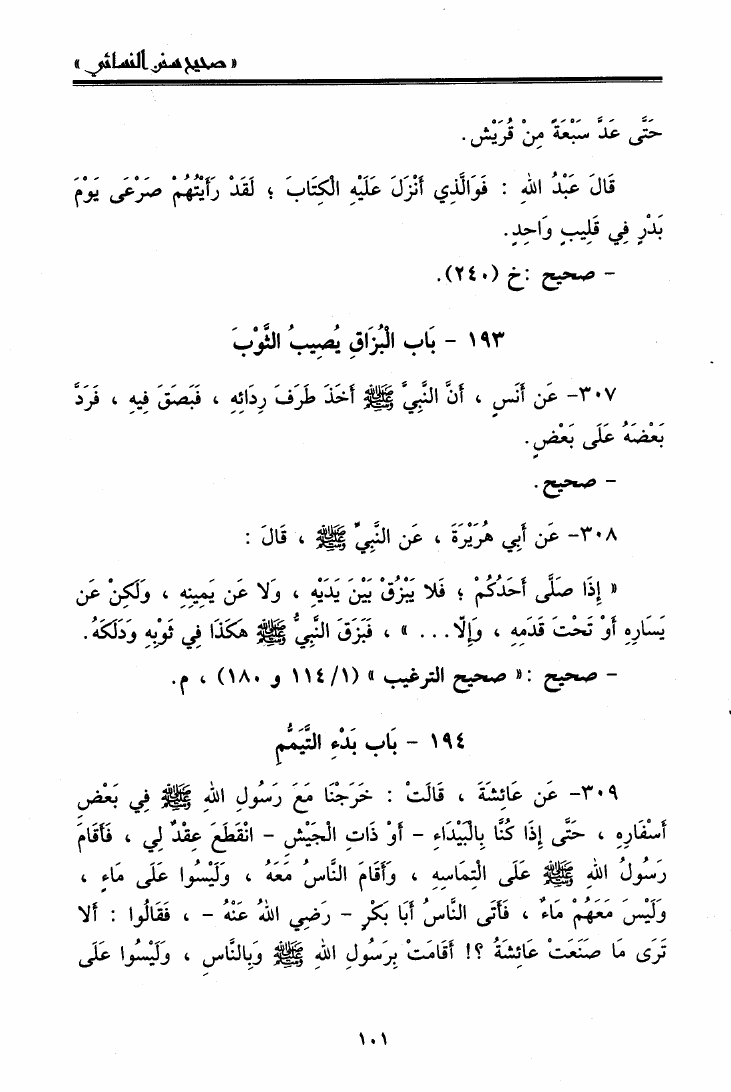 « صحيح سنن النسائي »
حَتَّى عَدَّ سَبْعَةً مِنْ قُرَيْش.
قَالَ عَبْدُ اللهِ : فَوَالَّذِي أَنْزَلَ عَلَيْهِ الْكِتَابَ ؛ لَقَدْ رَأَيْتُهُمْ صَرْعَى يَوْمَ
بَدْرٍ فِي قَلِيبٍ وَاحِدٍ.
- صحيح :خ (٢٤٠).
١٩٣ - بَاب الْبُزَاقِ يُصِيبُ الثَّوْبَ
٣٠٧- عَن أَنَسٍ ، أَنَّ النَّبِيَّ ﷺ أَخَذَ طَرَفَ رِدَائِهِ ، فَبَصَقَ فِيهِ ، فَرَدَّ
بَعْضَهُ عَلَى بَعْضٍ.
- صحيح.
٣٠٨- عَن أَبِي هُرَيْرَةَ ، عَن النَّبِيِّ ﷺ ، قَالَ :
« إِذَا صَلَّى أَحَدُكُمْ ؛ فَلا يَبْزُقْ بَيْنَ يَدَيْهِ ، وَلا عَن يَمِينِهِ ، وَلَكِنْ عَن
يَسَارِهِ أَوْ تَحْتَ قَدَمِهِ ، وَإِلّا... » ، فَبَزَقَ النَّبِيُّ ﷺ هكَذَا فِي ثَوْبِهِ وَدَلَكَهُ.
- صحيح :« صحيح الترغيب » (١/١١٤ و ١٨٠) ، م.
١٩٤ - بَاب بَدْءِ التَّيَمُّمِ
٣٠٩- عَن عَائِشَةَ ، قَالَتْ : خَرَجْنَا مَعَ رَسُولِ اللهِ ﷺ فِي بَعْضِ
أَسْفَارِهِ ، حَتَّى إِذَا كُنَّا بِالْبَيْدَاءِ - أَوْ ذَاتِ الْجَيْشِ - انْقَطَعَ عِقْدٌ لِي ، فَأَقَامَ
رَسُولُ اللهِ ﷺ عَلَى الْتِمَاسِهِ ، وَأَقَامَ النَّاسُ مَعَهُ ، وَلَيْسُوا عَلَى مَاءٍ ،
وَلَيْسَ مَعَهُمْ مَاءٌ ، فَأَتَى النَّاسُ أَبَا بَكْرٍ - رَضِي اللهُ عَنْهُ - ، فَقَالُوا : أَلا
تَرَى مَا صَنَعَتْ عَائِشَةُ ؟! أَقَامَتْ بِرَسُولِ اللهِ ﷺ وَبِالنَّاسِ ، وَلَيْسُوا عَلَى
١٠١